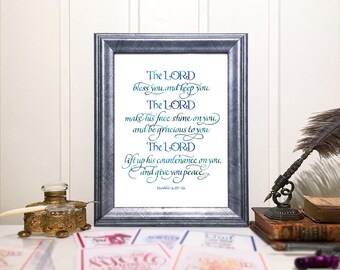 The LORD
bless you, and keep you.
The LORD
make his face shine on you,
and be gracious to you.
The LORD
lift up his countenance on you,
and give you peace.